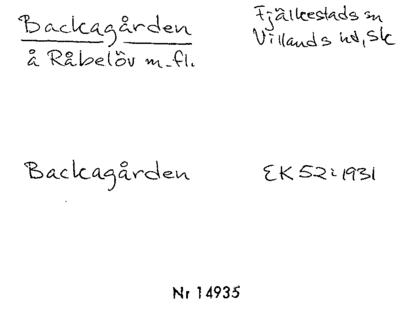 Backagården
å Råbelöv m.fl.
Fjälkestads sn
Villands hd, Sk
Backagården
EK 52:1931
Nr 14935